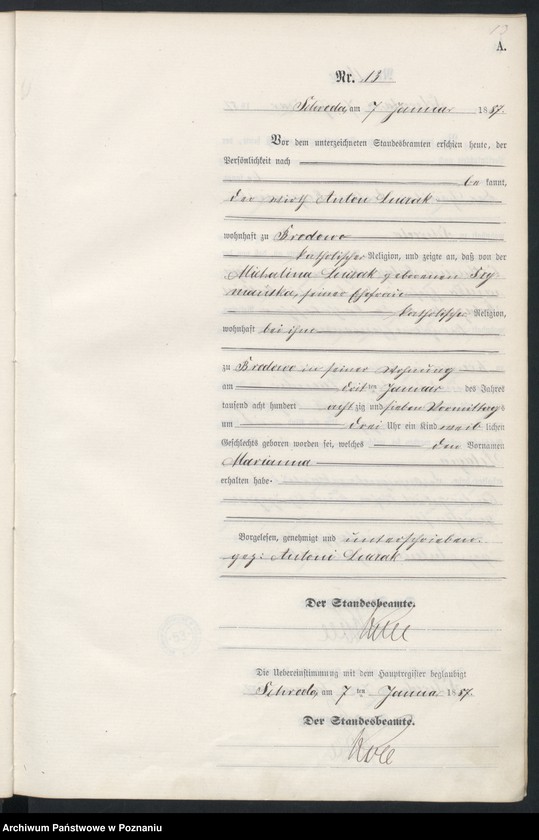 13
A.
Nr. 13
Schroda, am 7 Januar 1887.
Vor dem unterzeichneten Standesbeamten erschien heute, der
Persönlichkeit nach
be kannt,
der Wirth Anton
wohnhaft zu Brodowo
katholischer Religion, und zeigte an, daß von der
Michalina geborenen Szy
mańska, seiner Ehefrau
katholischer Religion,
wohnhaft bei ihm
zu Brodowo in seiner Wohnung
am drit ten Januar des Jahres
tausend acht hundert acht zig und sieben Vormittags
um drei Uhr ein Kind weib lichen
Geschlechts geboren worden sei, welches den Vornamen
Marianna
erhalten habe.
Vorgelesen, genehmigt und unterschrieben.
gez: Antoni
Der Standesbeamte.
Die Uebereinstimmung mit dem Hauptregister beglaubigt
Schroda, am 7 ten Januar 1887.
Der Standesbeamte.
Archiwum Państwowe w Poznaniu